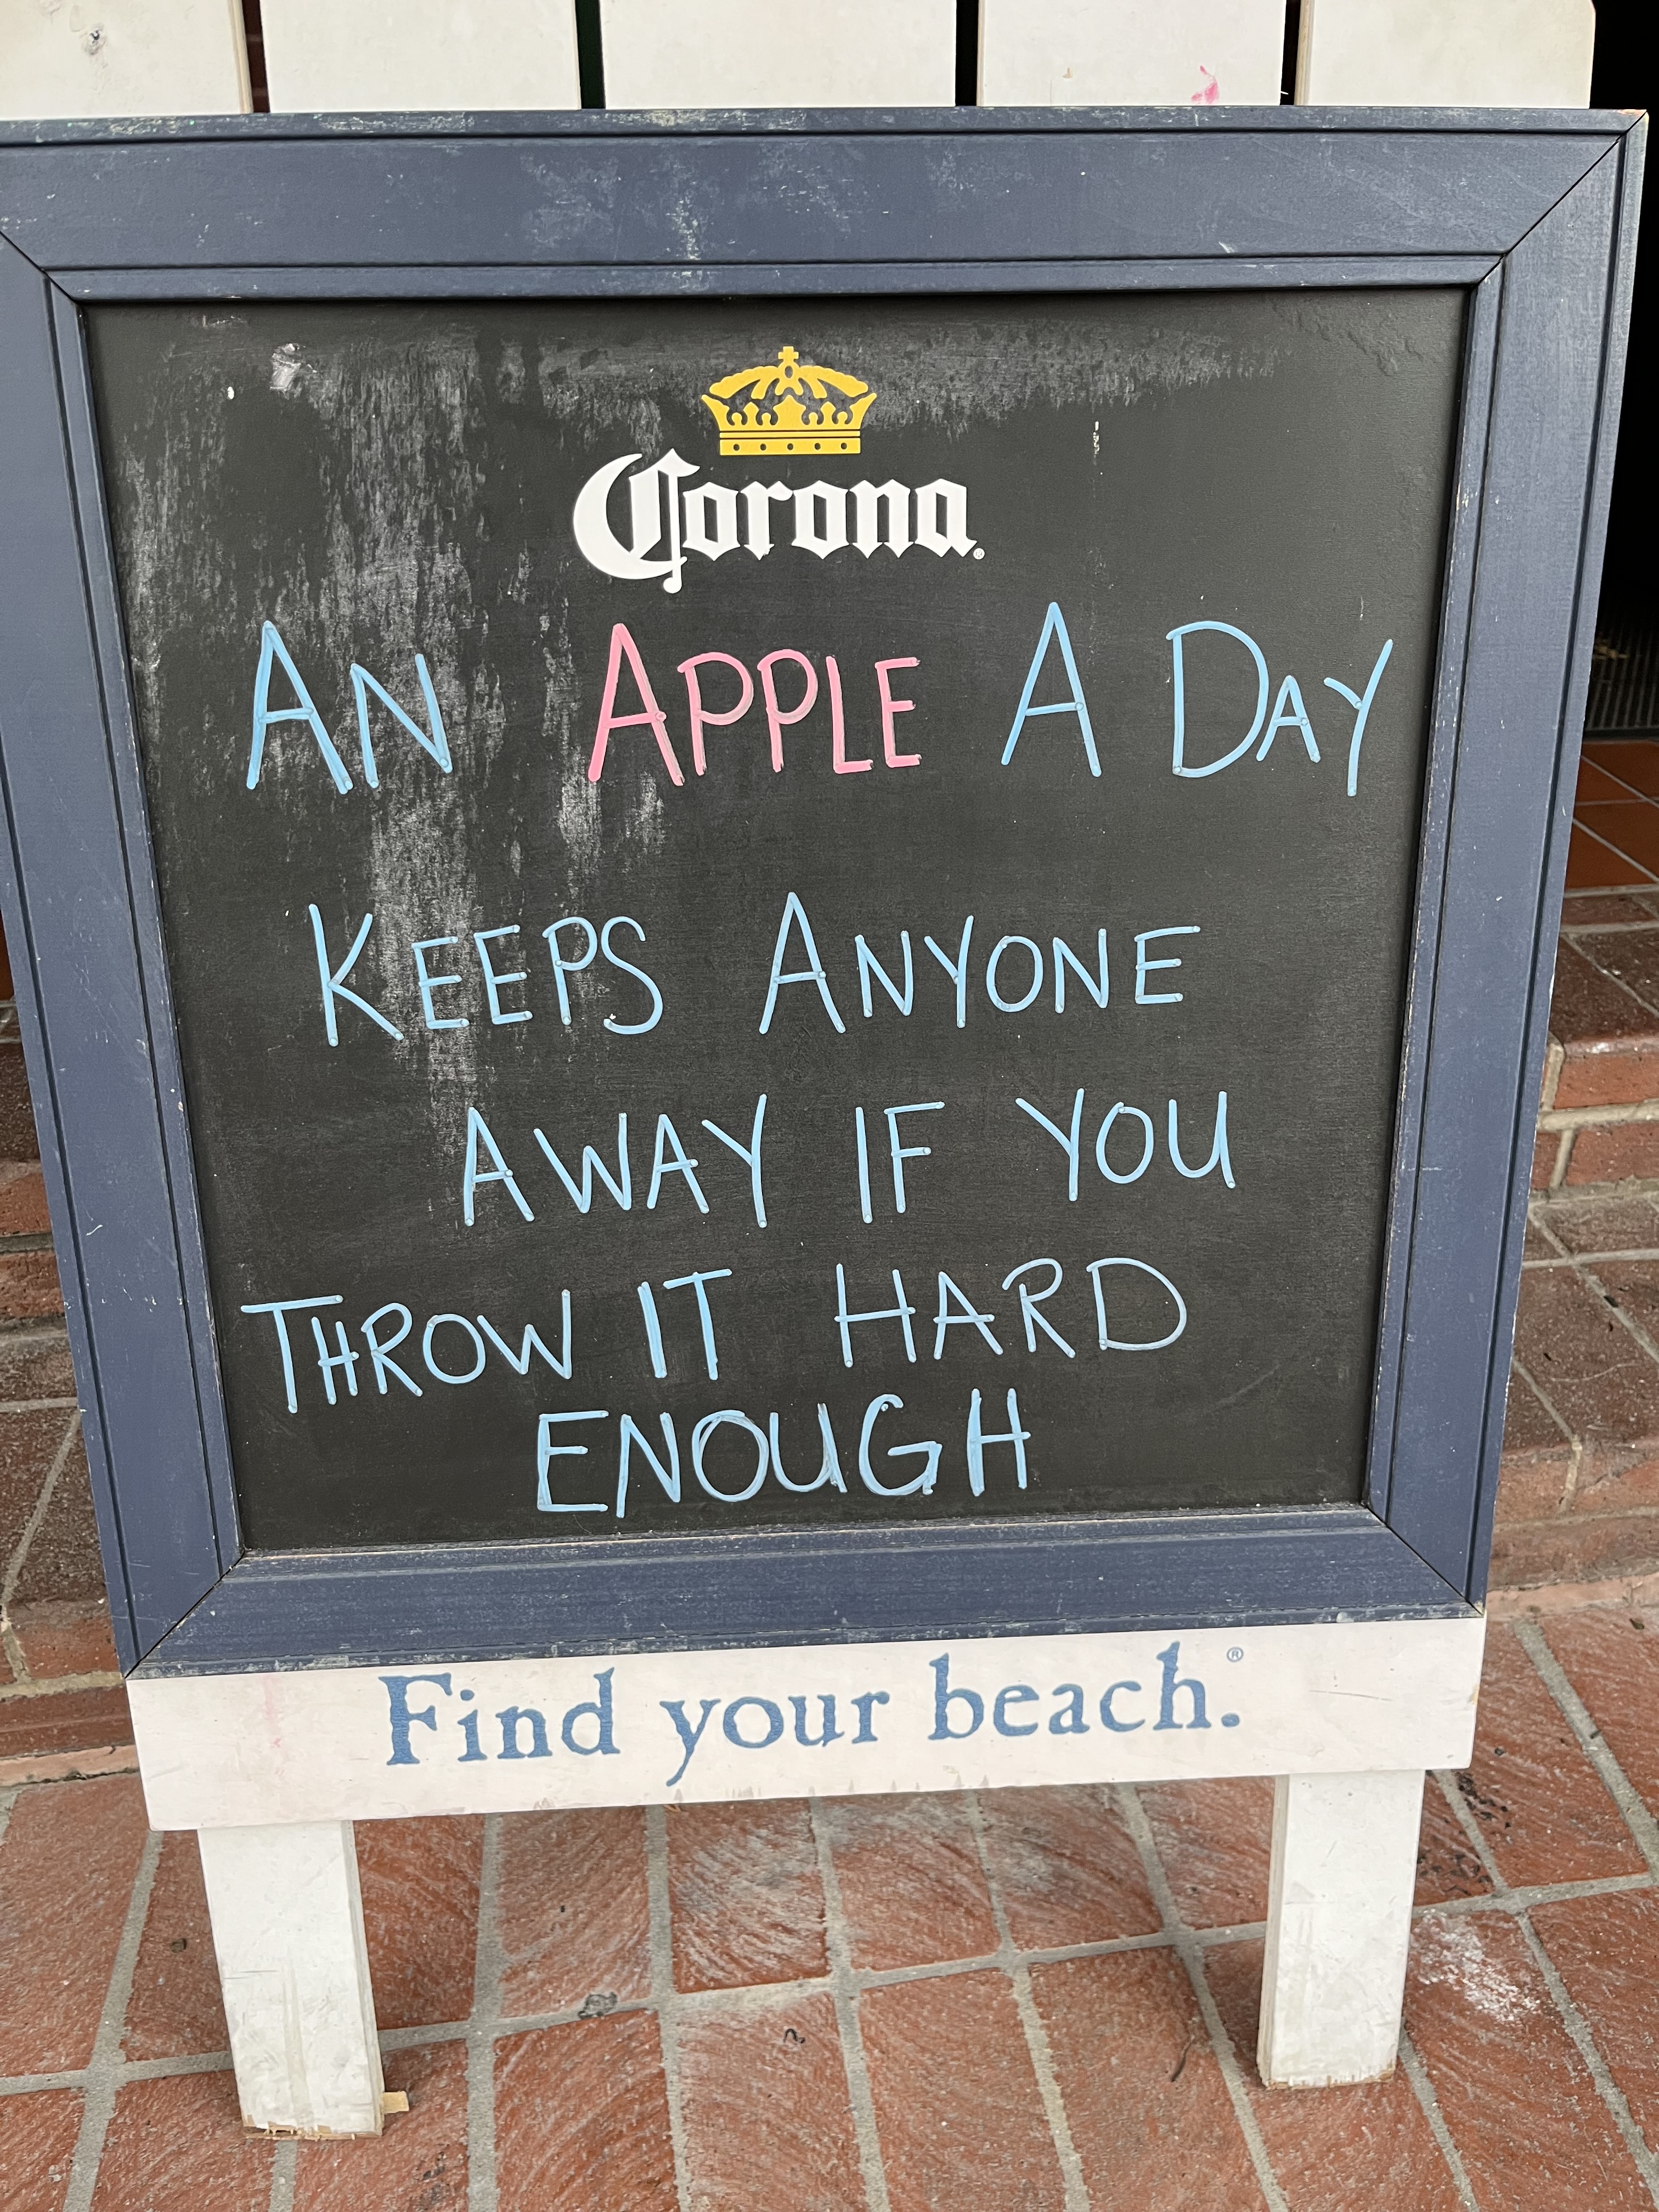 Corona®
AN APPLE A DAY
KEEPS ANYONE
AWAY IF YOU
THROW IT HARD
ENOUGH
Find your beach.®